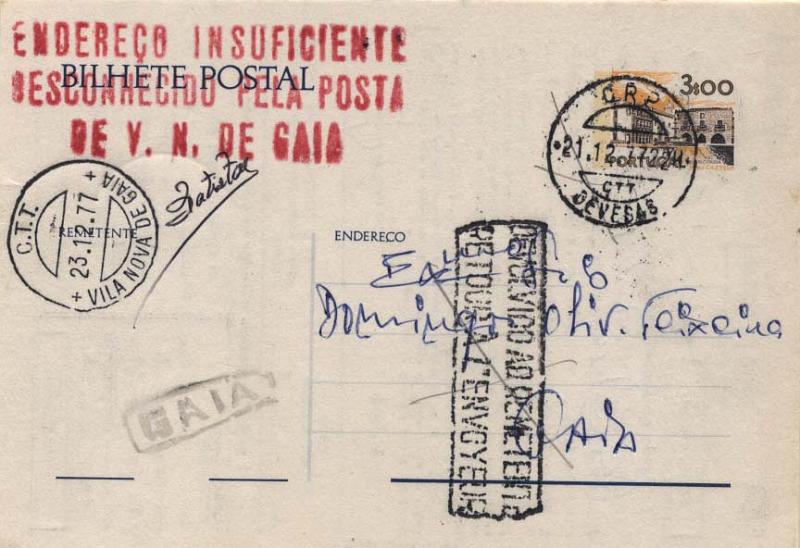 ENDEREÇO INSUFICIENTE
DESCONHECIDO PELA POSTA
DE V. N. DE GAIA
BILHETE POSTAL
3$00
PORTUGAL
C.R.P.
21.12.77
CTT
DEVESAS
C.T.T.
23.12.77
+ VILA NOVA DE GAIA +
REMETENTE
ENDEREÇO
Domingos Oliv. Teixeira
Gaia
DEVOLVIDO AO REMETENTE
RETOUR A L'ENVOYEUR
GAIA